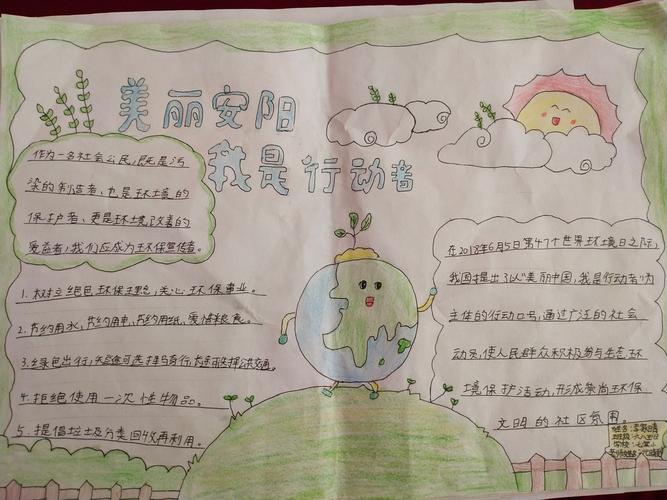 美丽安阳
我是行动者
作为一名社会公民,既是污
染的制造者、也是环境的
保护者、更是环境改善的
受益者,我们应成为环保宣传者。
1. 树立绝色环保理念,关心环保事业。
2. 节约用水,节约用电,节约用纸,爱惜粮食。
3. 绿色出行,短途可选择步行,
4. 拒绝使用一次性物品。
5. 提倡垃圾分类回收再利用。
在2018年6月5日第47个世界环境日之际,
我国提出了以"美丽中国,我是行动者"为
主体的行动口号,通过广泛的社会
动员,使人民群众积极参与生态环
境保护活动,形成崇尚环保
文明的社区氛围。
姓名:
班级:
学校: